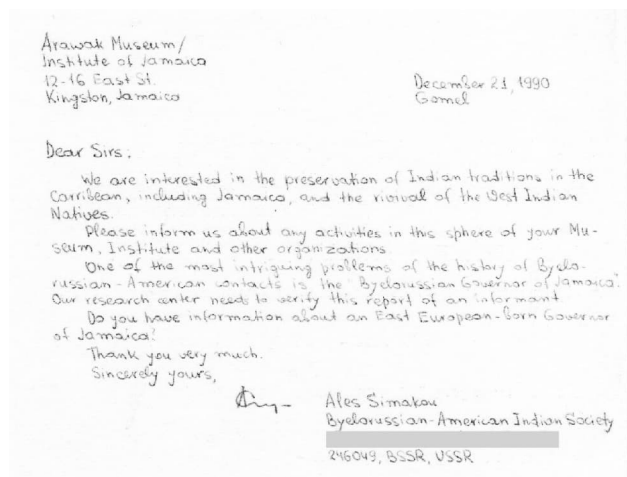 Arawak Museum/
Institute of Jamaica
12-16 East St.
Kingston, Jamaica
December 21, 1990
Gomel
Dear Sirs:
We are interested in the preservation of Indian traditions in the
Carribean, including Jamaica, and the rivival of the West Indian
Natives.
Please inform us about any activities in this sphere of your Mu-
seum, Institute and other organizations.
One of the most intriguing problems of the history of Byelo-
russian-American contacts is the "Byelorussian Governor of Jamaica".
Our research center needs to verify this report of an informant.
Do you have information about an East European-born Governor
of Jamaica?
Thank you very much.
Sincerely yours,
Ales Simakou
Byelorussian-American Indian Society
246049, BSSR, USSR